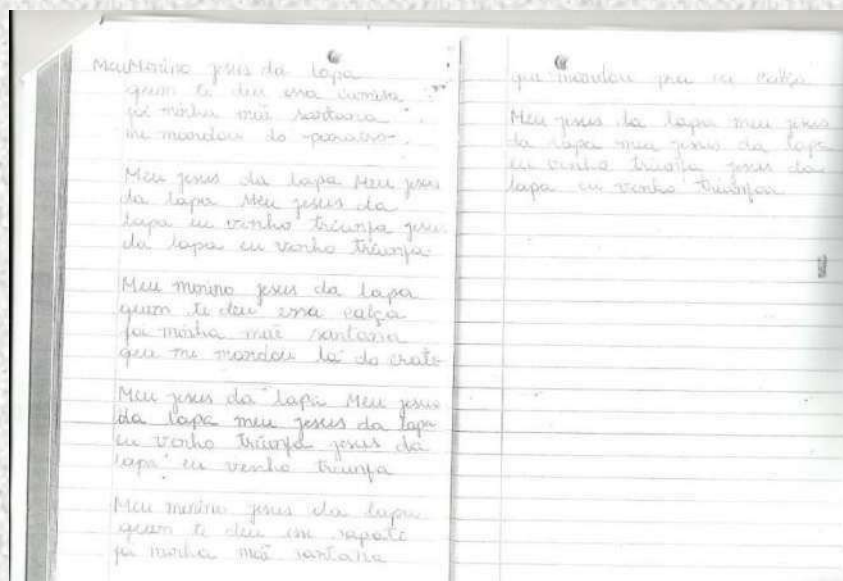 Meu Menino jesus da lapa
quem te deu essa camisa
foi minha mãe santana
me mandou do paraiso.
Meu jesus da lapa Meu jesus
da lapa Meu jesus da
lapa eu venho triunfa jesus
da lapa eu venho triunfa
Meu menino jesus da lapa
quem te deu essa calça
foi minha mãe santana
que me mandou lá do crato
Meu jesus da lapa Meu jesus
da lapa meu jesus da lapa
eu venho triunfa jesus da
lapa eu venho triunfa
Meu menino jesus da lapa
quem te deu esse sapato
foi minha mãe santana
que mandou pra eu calça
Meu jesus da lapa meu jesus
da lapa meu jesus da lapa
eu venho triunfa jesus da
lapa eu venho triunfa